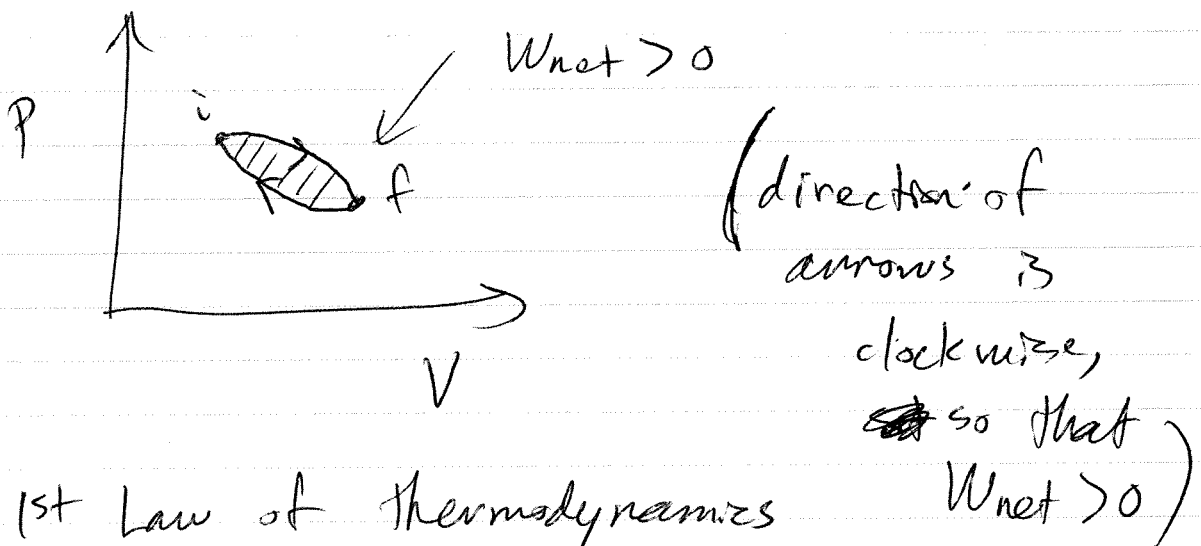 Wnet > 0
P
i
f
(direction of
arrows is
clockwise,
so that
Wnet > 0)
V
1st Law of thermodynamics